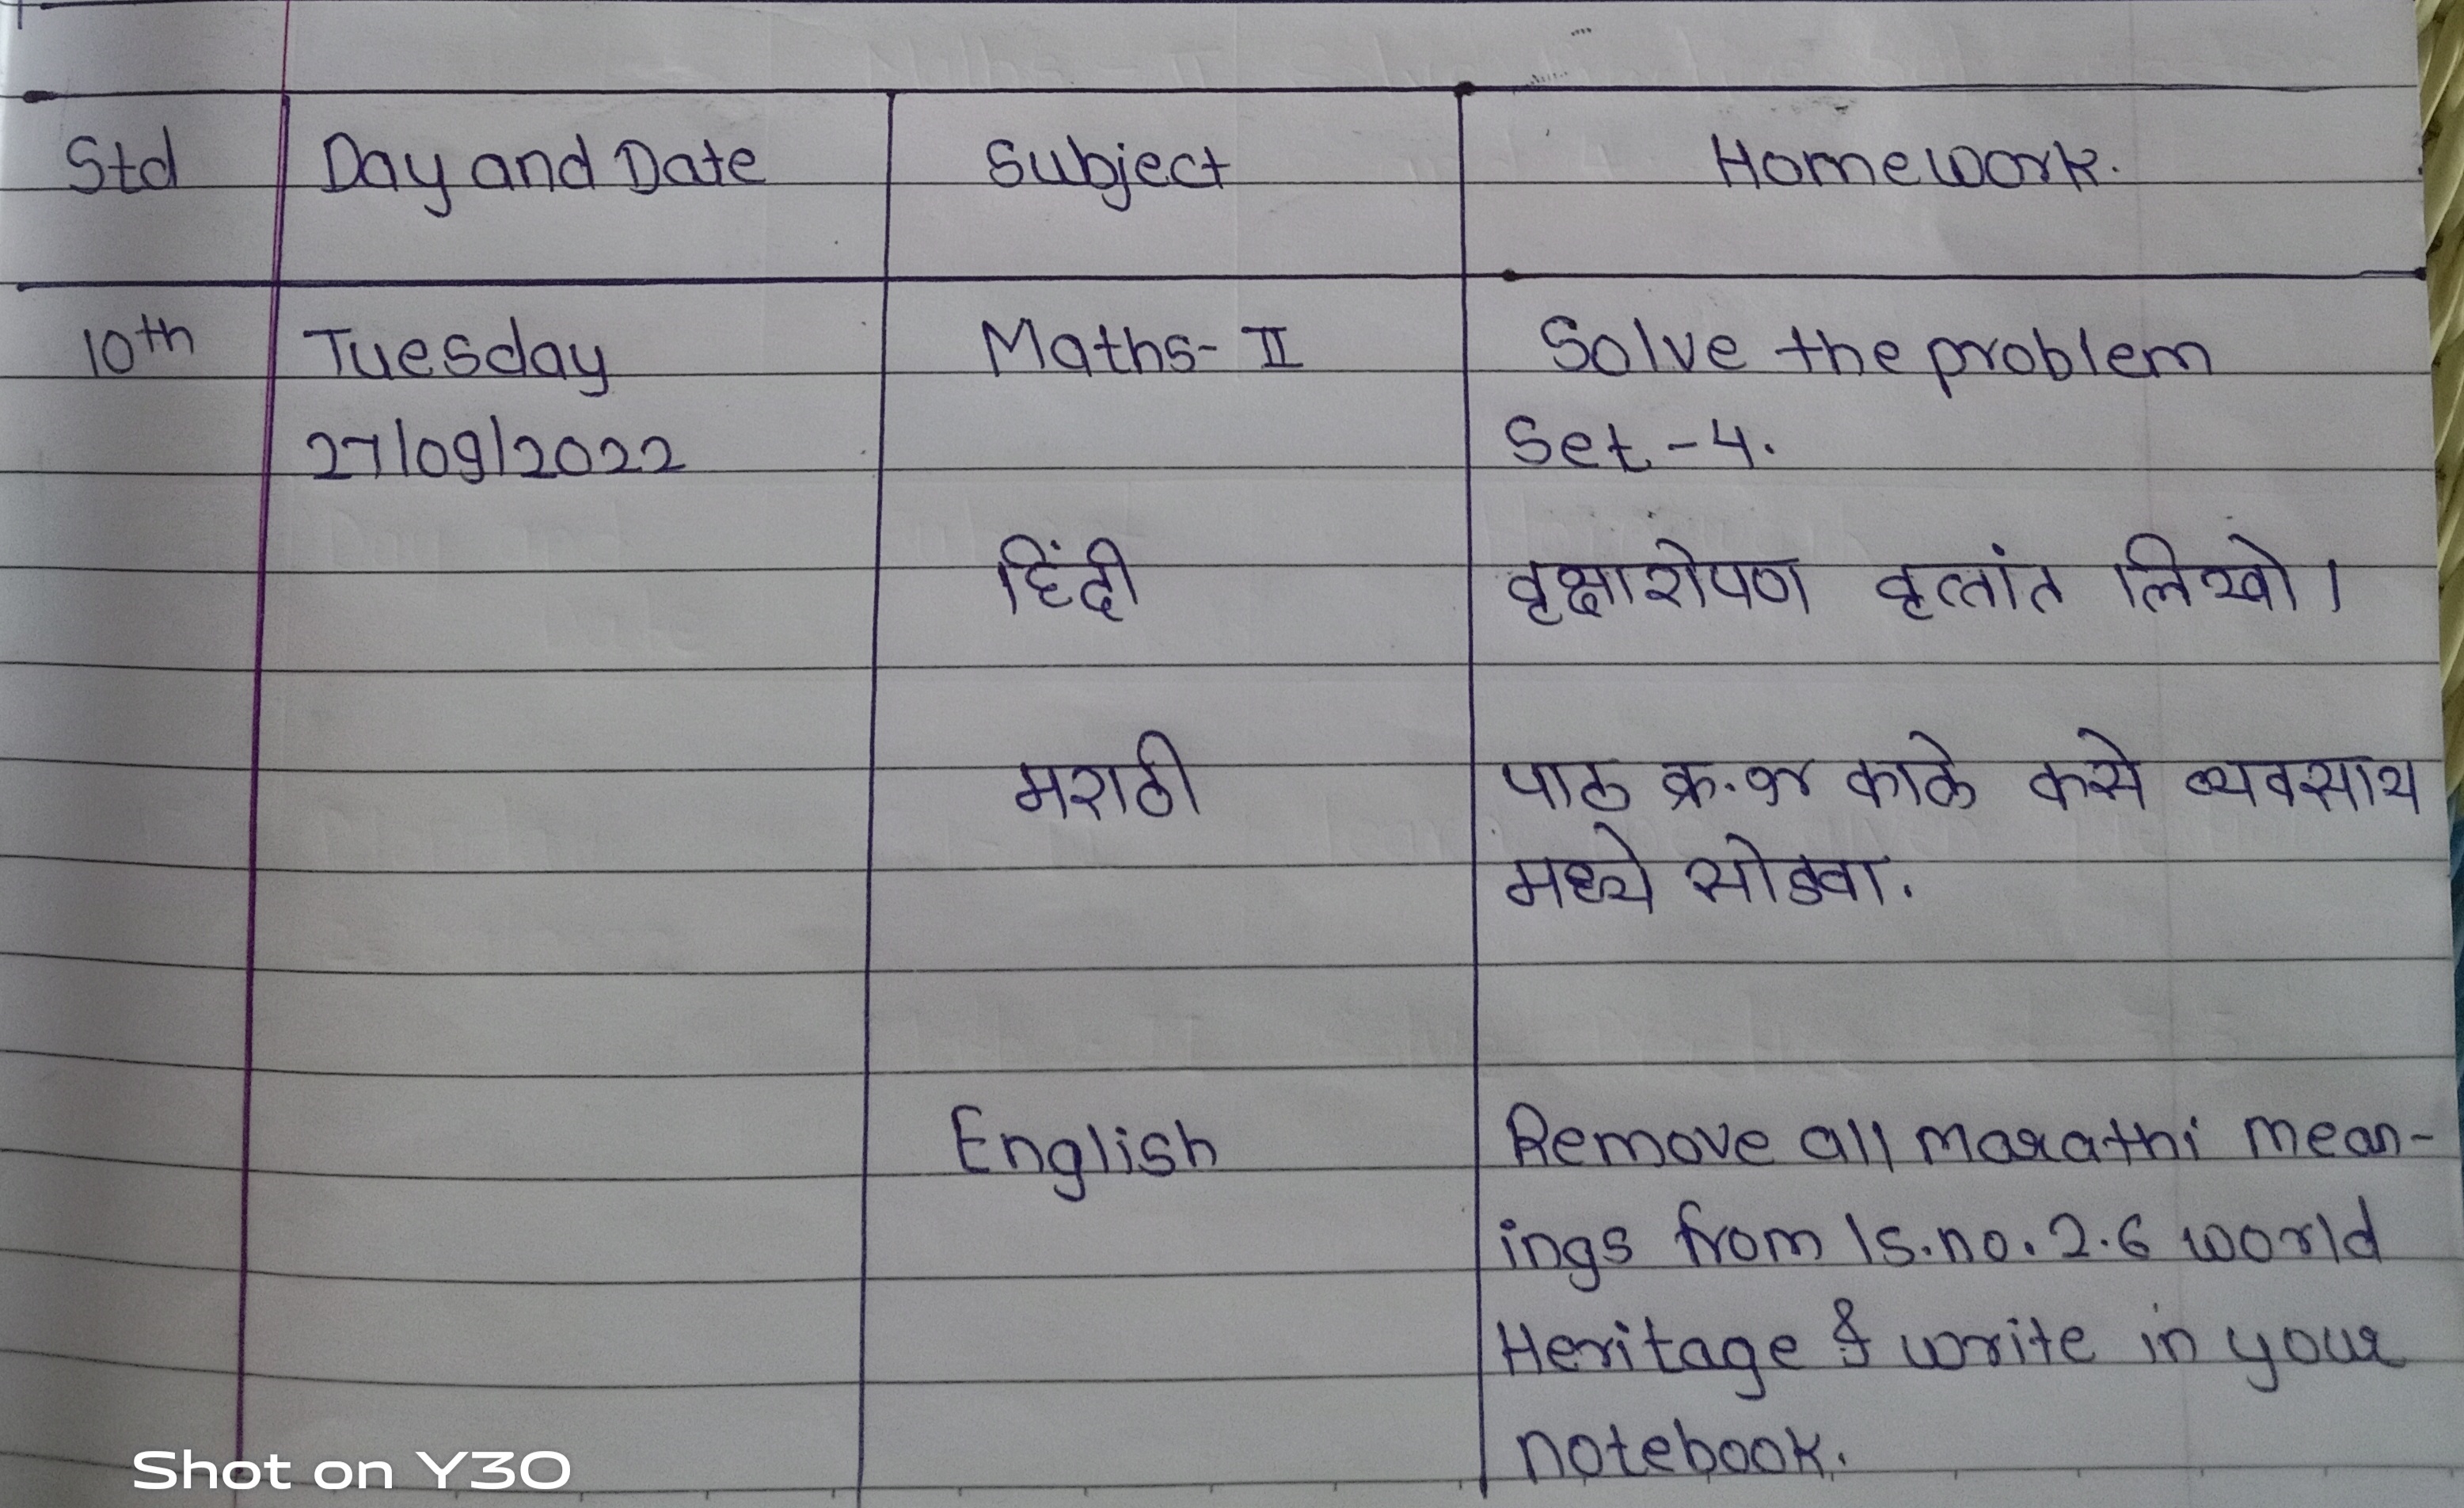 Std Day and Date Subject Homework.
10th Tuesday Maths- II Solve the problem
27/09/2022 Set - 4.
हिंदी वृक्षारोपण वृत्तांत लिखो।
मराठी पाठ क्र. १४ काळे केसे व्यवसाय
मध्ये सोडवा.
English Remove all marathi mean-
ings from ls.no. 2.6 world
Heritage & write in your
notebook.
Shot on Y30